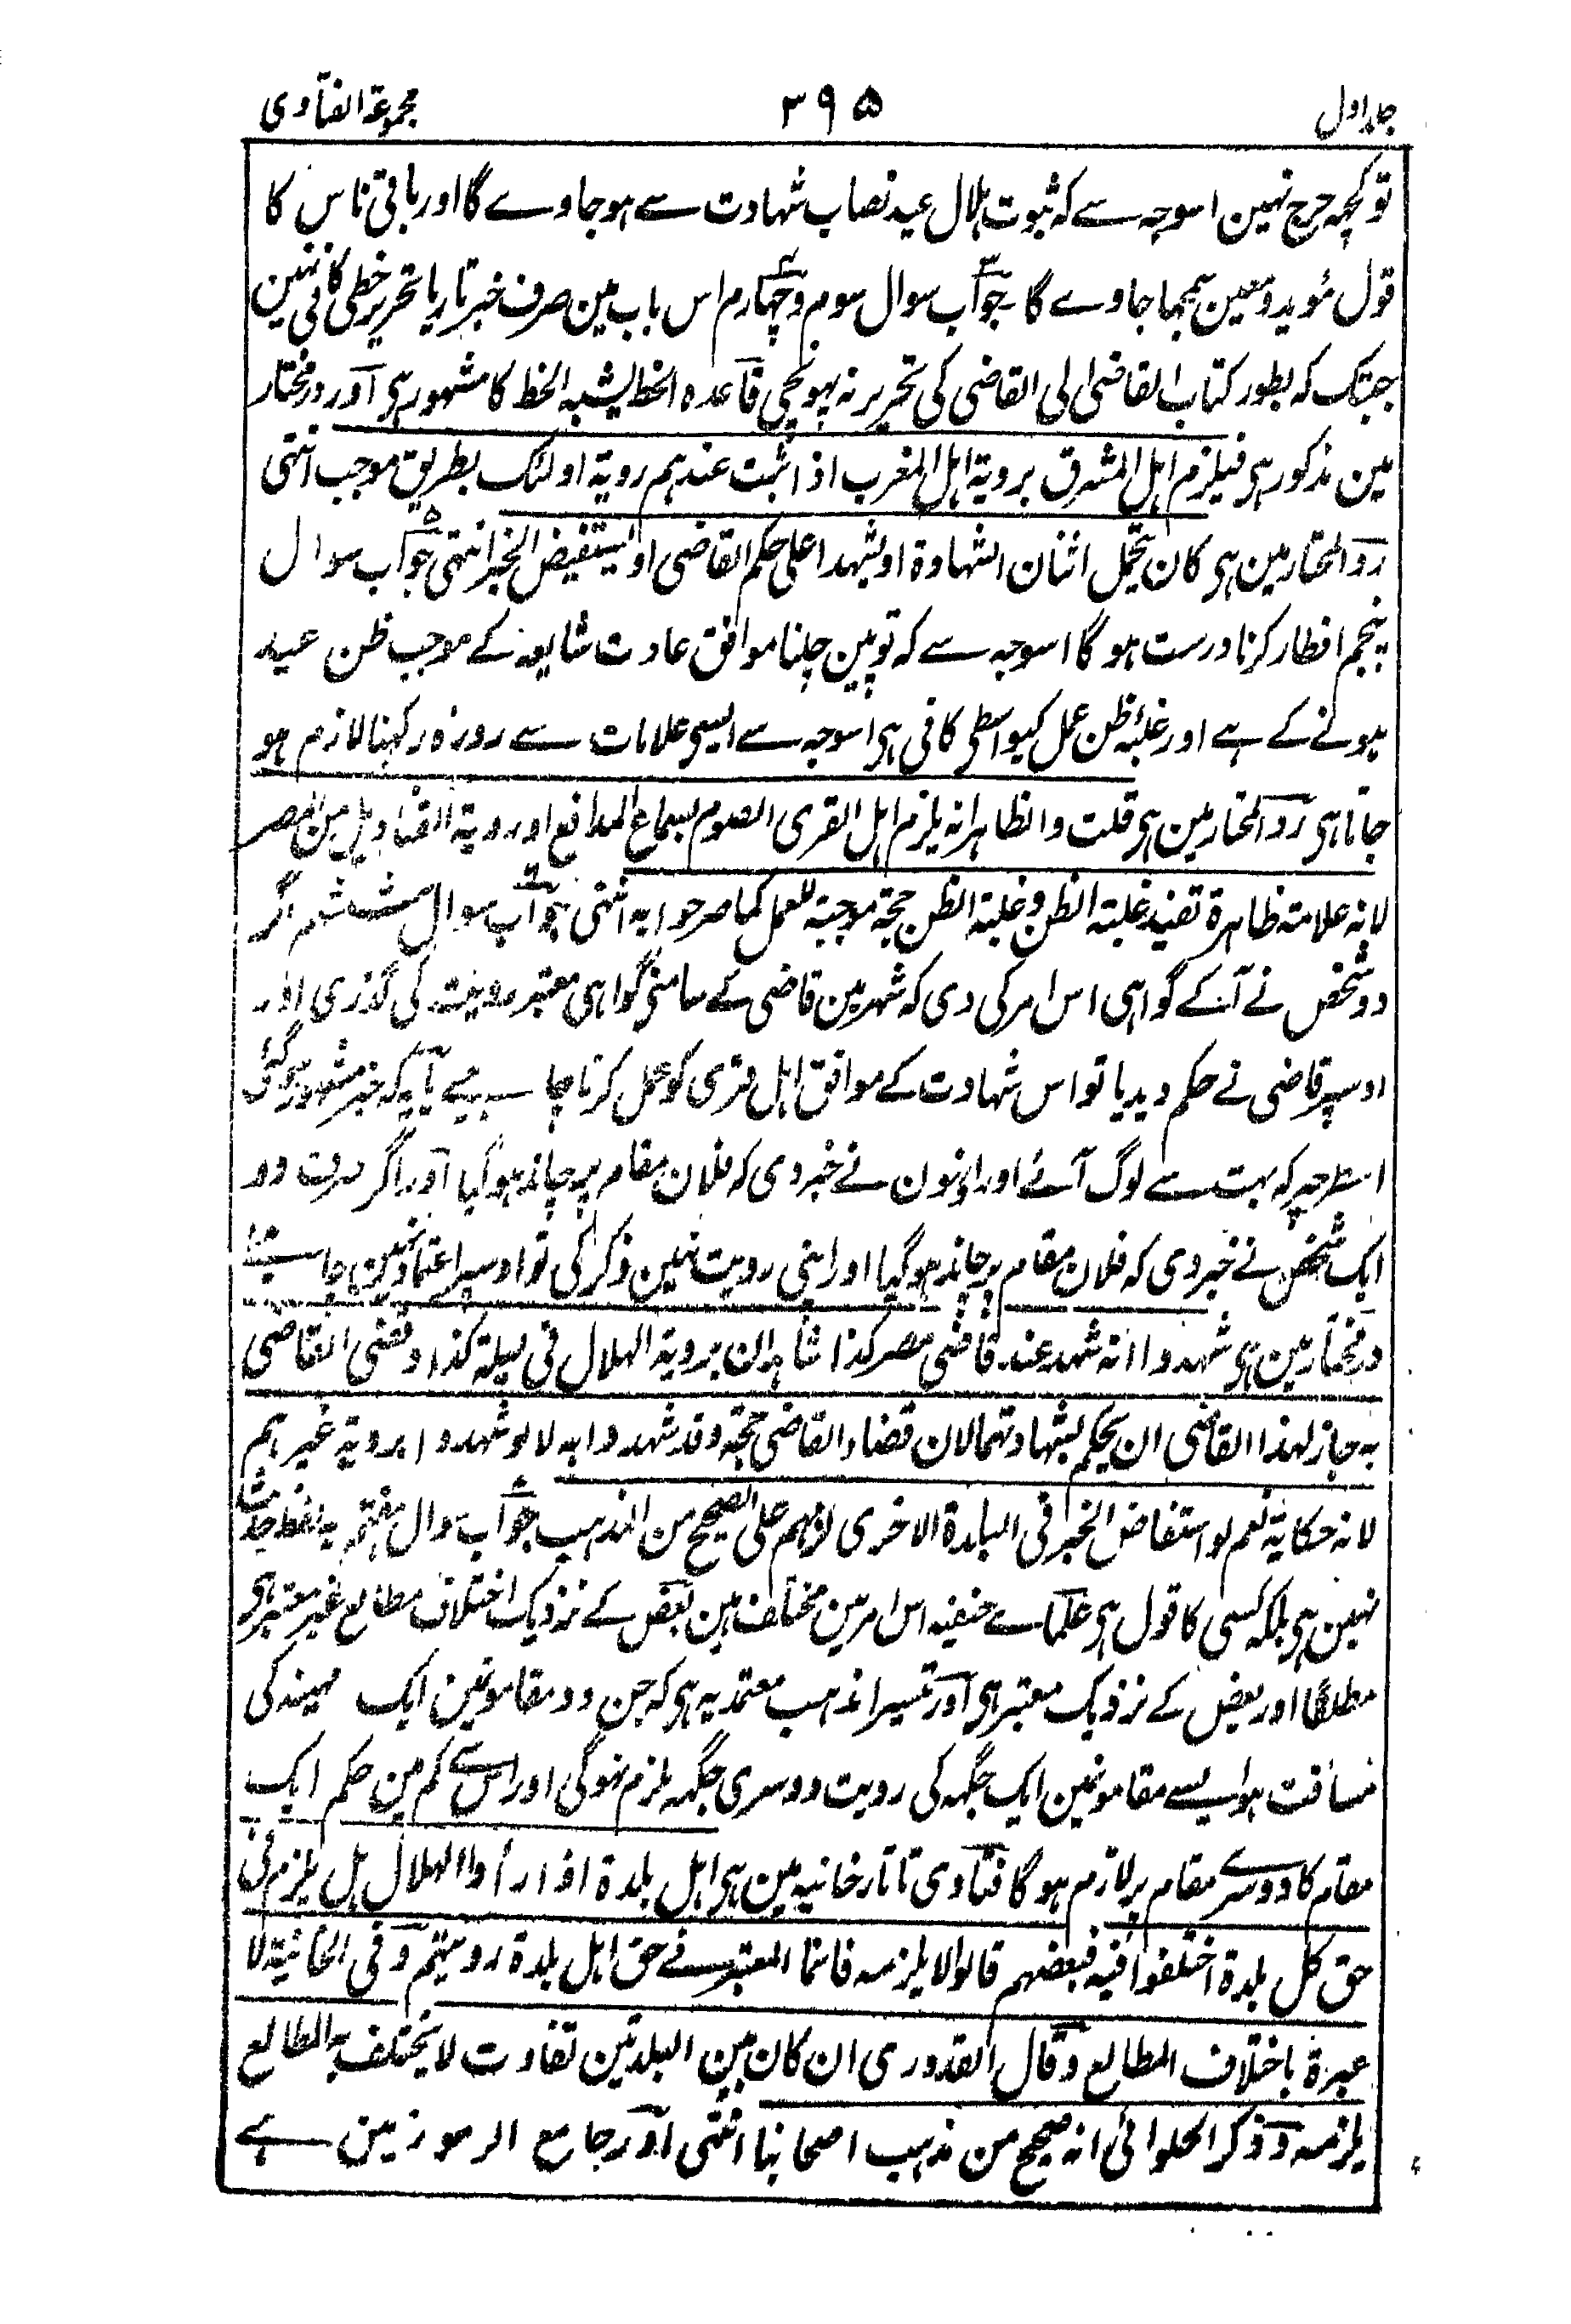 جلد اول ۳۹۵ مجموعۃ الفتاوی
تو کچھ حرج نہین اسوجہ سے کہ ثبوت ہلال عید نصاب شہادت سے ہو جاوے گا اور باقی ناس کا
قول مؤید و معین سمجھا جاوے گا جواب سوال سوم و چہارم اس باب مین صرف خبر تار یا تحریر خطی کافی نہین
جبتک کہ بطور کتاب القاضی الی القاضی کی تحریر نہ پہونچی قاعدہ الخط یشبہ الخط کا مشہور ہی اور در مختار
مین مذکور ہی فیلزم اہل المشرق برویۃ اہل المغرب اذا ثبت عندہم رویۃ اولئک بطریق موجب انتہی
رد المحتار مین ہی کان یتحمل اثنان الشہادۃ او یشہدا علی حکم القاضی او یستفیض الخبر انتہی جواب سوال
پنجم افطار کرنا درست ہو گا اسوجہ سے کہ توپین چلنا موافق عادت شایعہ کے موجب ظن عید
ہونے کے ہے اور غلبۂ ظن عمل کیواسطی کافی ہی اسوجہ سے ایسی علامات سے روزہ رکہنا لازم ہو
جاتا ہی رد المحتار مین ہی قلت والظاہر انہ یلزم اہل القری الصوم بسماع المدافع او رویۃ القنادیل من المصر
لانہ علامۃ ظاہرۃ تفید غلبۃ الظن و غلبۃ الظن حجۃ موجبۃ للعمل کما صرحوا بہ انتہی جواب سوال ششم اگر
دو شخص نے آکے گواہی اس امر کی دی کہ شہر مین قاضی کے سامنی گواہی معتبر رویت کی گذری اور
اوسپر قاضی نے حکم دیدیا تو اس شہادت کے موافق اہل قری کو عمل کرنا چاہیے یا یہ کہ خبر مشہور ہو گئی
اسطرحپر کہ بہت سے لوگ آئے اور اونہون نے خبر دی کہ فلان مقام پر چاند ہو گیا اور اگر صرف دو
ایک شخص نے خبر دی کہ فلان مقام پر چاند ہو گیا اور اپنی رویت نہین ذکر کی تو اوسپر اعتماد نہین چاہیئے
در مختار مین ہی شہدوا انہ شہد عند قاضی مصر کذا شاہدان برویۃ الہلال فی لیلۃ کذا و قضی القاضی
بہ جاز لہذا القاضی ان یحکم بشہادتہما لان قضاء القاضی حجۃ و قد شہدوا بہ لا لو شہدوا برویۃ غیرہم
لانہ حکایۃ نعم لو استفاض الخبر فی البلدۃ الاخری لزمہم علی الصحیح من المذہب جواب سوال ہفتم یہ لفظ حدیث
نہین ہی بلکہ کسی کا قول ہی علماے حنفیہ اس امر مین مختلف ہین بعض کے نزدیک اختلاف مطالع غیر معتبر ہی
مطلقا اور بعض کے نزدیک معتبر ہی اور تیسرا مذہب معتمد یہ ہی کہ جن دو مقامونمین ایک مہینہ کی
مسافت ہو ایسے مقامونمین ایک جگہہ کی رویت دوسری جگہہ ملزم نہو گی اور اس سے کم مین حکم ایک
مقام کا دوسرے مقام پر لازم ہو گا فتاوی تاتارخانیہ مین ہی اہل بلدۃ اذا رأوا الہلال ہل یلزم فی
حق کل بلدۃ اختلفوا فیہ فبعضہم قالوا لا یلزمہ فانما المعتبر فے حق اہل بلدۃ رویتہم و فی الخانیۃ لا
عبرۃ باختلاف المطالع و قال القدوری ان کان بین البلدتین تفاوت لا یختلف بہ المطالع
یلزمہ و ذکر الحلوائی انہ صحیح من مذہب اصحابنا انتہی اور جامع الرموز مین ہے